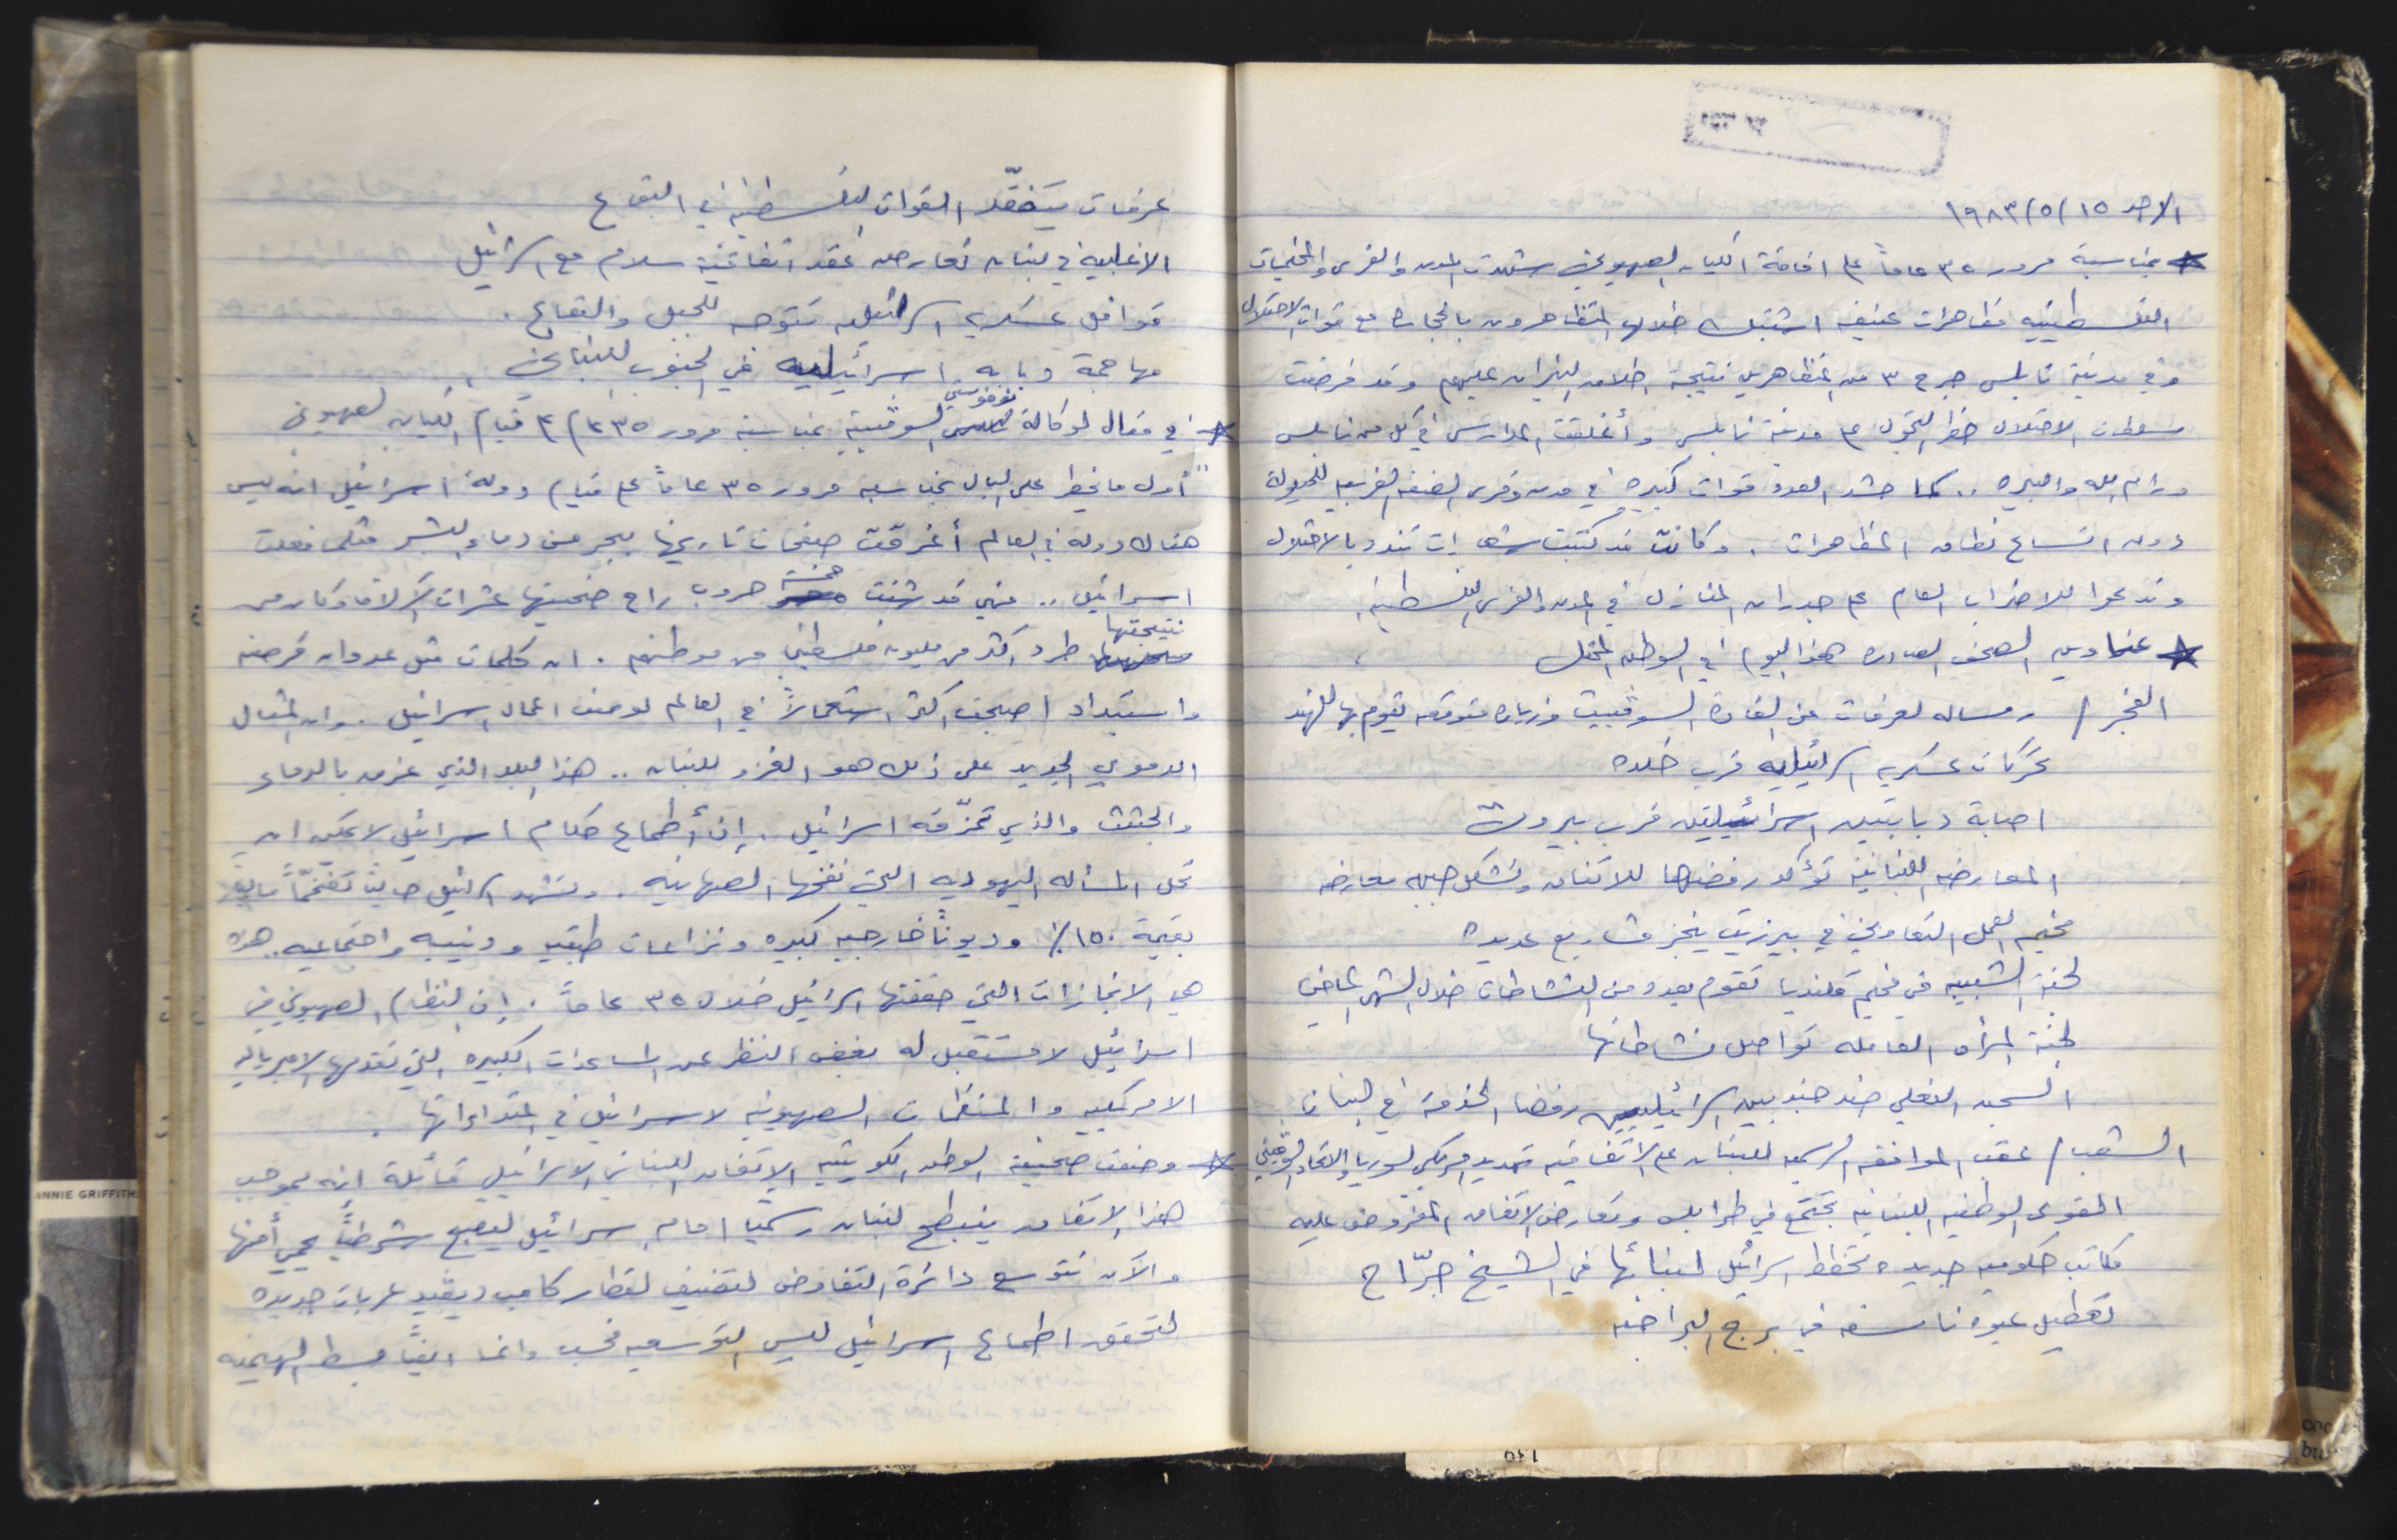 الاحد ١٥/٥/١٩٨٣
بمناسبة مرور ٣٥ عاماً على اقامة الكيان الصهيوني شهدت المدن والقرى والمخيمات
الفلسطينيه مظاهرات عنيفه اشتبك خلالها المتظاهرون بالحجاره مع قوات الاحتلال
وفي مدينة نابلس جرح ٣ من المتظاهرين نتيجة اطلاق النيران عليهم وقد فرضت
سلطات الاحتلال حظر التجول على مدينة نابلس وأغلقت المدارس في كل من نابلس
ورام الله والبيره .. كما حشد العدو قوات كبيره في مدن وقرى الضفه الغربيه للحيلولة
دون اتساع نطاق المظاهرات . وكانت قد كتبت شعارات تندد بالاحتلال
وتدعوا للاضراب العام على جدران المنازل في المدن والقرى الفلسطينيه .
عناوين الصحف الصادره هذا اليوم في الوطن المحتل
الفجر / رساله لعرفات من القادة السوفييت وزياره متوقعه يقوم بها للهند
تحركات عسكريه اسرائيليه قرب خلده
اصابة دبابتين اسرائيليتين قرب بيروت
المعارضه اللبنانيه تؤكد رفضها للاتفاق وتشكل جبهه معارضه
مخيم العمل التعاوني في بيرزيت ينجز مشاريع عديده
لجنة الشبيبه في مخيم قلنديا تقوم بعدد من النشاطات خلال الشهر الماضي
لجنة المرأه العامله تواصل نشاطاتها
السجن الفعلي ضد جنديين اسرائيليين رفضا الخدمة في لبنان
الشعب / عقب الموافقه الرسميه للبنان على الاتفاقيه تهديد امريكي لسوريا والاتحاد السوفيتي
القوى الوطنيه اللبنانيه تجتمع في طرابلس وتعارض الاتفاق المفروض عليه
مكاتب حكوميه جديده تخطط اسرائيل لبنائها في الشيخ جرّاح
تعطيل عبوه ناسفه في برج البراجنه
عرفات يتفقّد القوات الفلسطينيه في البقاع
الاغلبيه في لبنان تعارض عقد اتفاقية سلام مع اسرائيل
قوافل عسكريه اسرائيليه تتوجه للجبل والبقاع .
مهاجمة دبابه اسرائيليه في الجنوب اللبناني .
في مقال لوكالة نوفوستي السوفييتية بمناسبة مرور ٣٥ ع/ على قيام الكيان الصهيوني
"أول ما يخطر على البال بمناسبه مرور ٣٥ عاماً على قيام دولة اسرائيل انه ليس
هناك دولة في العالم أغرقت صفحات تاريخها ببحر من دماء البشر مثلما فعلت
اسرائيل .. فهي قد شنت خمسة حروب راح ضحيتها عشرات الآلاف وكان من
نتيجتها طرد اكثر من مليون فلسطيني من موطنهم . ان كلمات مثل عدوان قرصنه
واستبداد اصبحت اكثر استعمالاً في العالم لوصف اعمال اسرائيل . وان المثال
الدموي الجديد على ذلك هو الغزو للبنان .. هذا البلد الذي غرق بالدماء
والجثث والذي تمزّقه اسرائيل . إن أطماع حكام اسرائيل لا يمكن ان
تحل المسأله اليهوديه التي نفخها الصهاينه . وتشهد اسرائيل حالياً تضخّماً مالياً
بقيمة ١٥٠٪ وديوناً خارجيه كبيره ونزاعات طبقيه ودينيه واجتماعيه .. هذه
هي الانجازات التي حققتها اسرائيل خلال ٣٥ عاماً . إن النظام الصهيوني في
اسرائيل لا مستقبل له بغض النظر عن المساعدات الكبيره التي تقدمها الامبرياليه
الامريكيه والمنظمات الصهيونيه لاسرائيل في اعتداءاتها .
وصفت صحيفة الوطن الكويتيه الاتفاق اللبناني الاسرائيلي قائلة إنه بموجب
هذا الاتفاق ينبطح لبنان رسمياً امام اسرائيل ليصبح شرطياً يحمي أمنها
والآن تتوسع دائرة التفاوض لتضيف لقطار كامب ديفيد عربات جديده
لتحقق اطماع اسرائيل ليس التوسعيه فحسب وانما ايضاً بسط الهيمنه
ANNIE GRIFFITHS
139